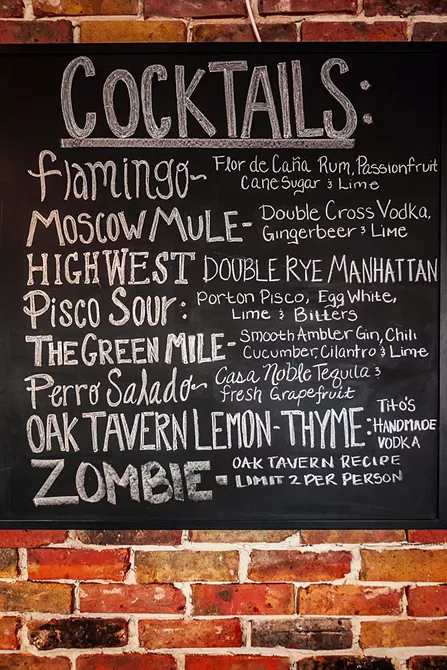 COCKTAILS:
Flamingo~ Flor de Caña Rum, Passionfruit
Cane Sugar & Lime
MOSCOW MULE- Double Cross Vodka,
Gingerbeer & Lime
HIGH WEST DOUBLE RYE MANHATTAN
Pisco Sour: Porton Pisco, Egg White,
Lime & Bitters
THE GREEN MILE- Smooth Ambler Gin, Chili
Cucumber, Cilantro & Lime
Perro Salado~ Casa Noble Tequila &
fresh Grapefruit
OAK TAVERN LEMON-THYME: TITO'S
HANDMADE
VODKA
ZOMBIE- OAK TAVERN RECIPE
LIMIT 2 PER PERSON